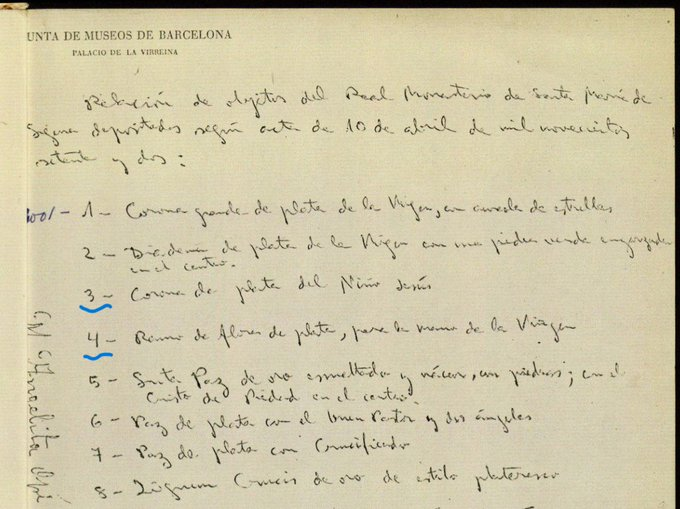 UNTA DE MUSEOS DE BARCELONA
PALACIO DE LA VIRREINA
Relación de objetos del Real Monasterio de Santa María de
Sigena depositados según acta de 10 de abril de mil novecientos
setenta y dos:
1 - Corona grande de plata de la Virgen, con aureola de estrellas
2 - Diadema de plata de la Virgen con una piedra verde engarzada
en el centro.
3 - Corona de plata del Niño Jesús
4 - Ramo de flores de plata, para la mano de la Virgen
5 - Santa Paz de oro esmaltado y nácar, con piedras; con el
Cristo de Piedad en el centro.
6 - Paz de plata con el buen Pastor y dos ángeles
7 - Paz de plata con Crucificado
8 - Lignum Crucis de oro de estilo plateresco